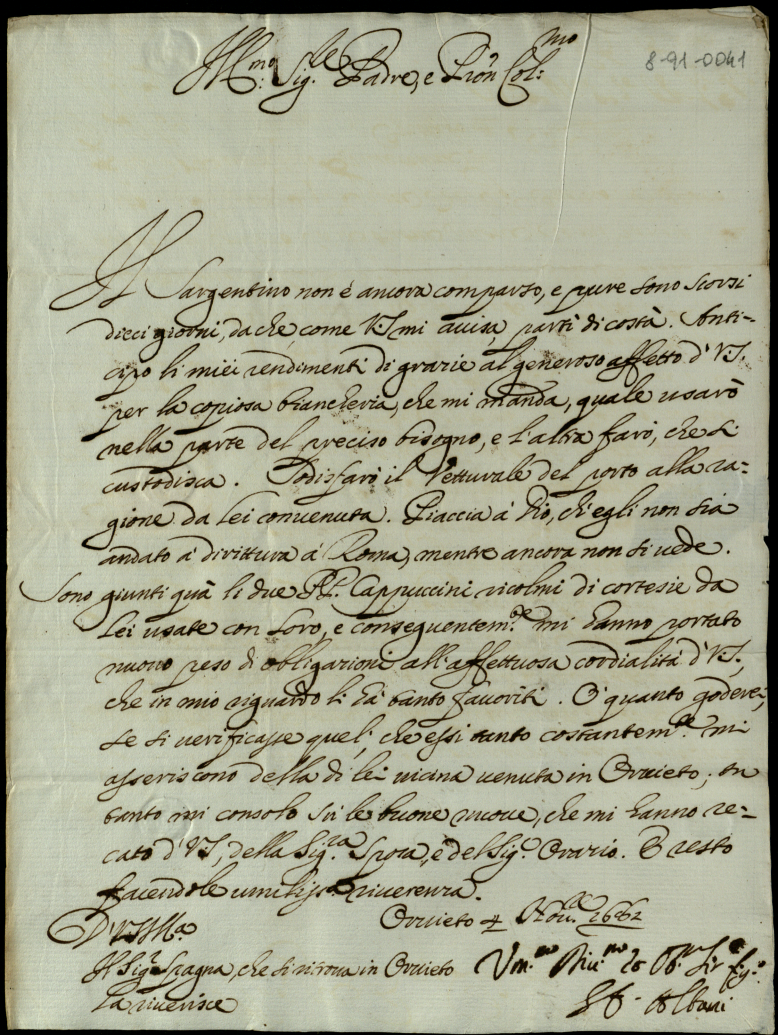 8-91-0041
Ill.mo Sig.re Padre, e Pron Col:mo
Il Sargentino non é ancora comparso, e pure sono scorsi
dieci giorni, da che come V.S. mi auisa, partì di costà. Anti-
cipo li miei rendimenti di grazie al generoso affetto d'V.S.
per la copiosa biancheria, che mi manda, quale usarò
nella parte del preciso bisogno, e l'altra farò, che si
custodisca. Sodisfarò il Vetturale del porto alla ra-
gione da lei conuenuta. Piaccia á Dio, ch'egli non sia
andato á dirittura á Roma, mentre ancora non si uede.
Sono giunti quà li due PP. Cappuccini ricolmi di cortesie da
lei usate con loro, e conseguentem.te mi hanno portato
nuouo peso di obligazioni all'affettuosa cordialità d'V.S.,
che in mio riguardo li há tanto fauoriti. O' quanto goderei,
se si uerificasse quel, che essi tanto costantem.te mi
asseriscono della di lei uicina uenuta in Oruieto; in
tanto mi consolo sù le buone nuoue, che mi hanno re-
cato d'V.S., della Sig.ra Sposa, e del Sig.r Orazio. E resto
facendole umiliss.a riuerenza.
D'V.S. Ill.a Oruieto 4
Il Sig.r Spagna, che si ritroua in Oruieto
la riuerisce
Albani